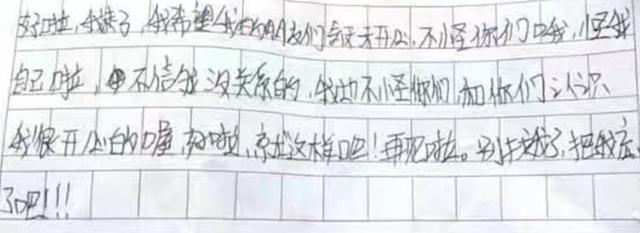 好啦,我走了,我希望我的朋友们每天开心,不怪你们哦,怪我
自己啦,不信我没关系的,我也不怪你们,和你们认识
我很开心的喔,好啦,就这样吧!再见啦。别找我了,把我忘
了吧!!!